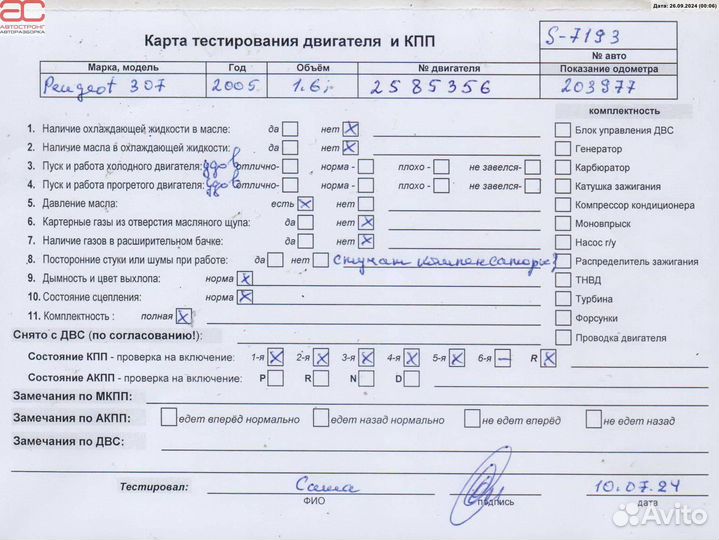 Дата: 26.09.2024 (00:06)
АС
АВТОСТРОНГ
АВТОРАЗБОРКА
Карта тестирования двигателя и КПП
S-7193
№ авто
Марка, модель Год Объём № двигателя Показание одометра
Peugeot 307 2005 1.6i 2585356 203977
комплектность
1. Наличие охлаждающей жидкости в масле: да нет X Блок управления ДВС
2. Наличие масла в охлаждающей жидкости: да нет X Генератор
3. Пуск и работа холодного двигателя: удов отлично- норма - плохо - не завелся- Карбюратор
4. Пуск и работа прогретого двигателя: удов отлично- норма - плохо - не завелся- Катушка зажигания
5. Давление масла: есть X нет Компрессор кондиционера
6. Картерные газы из отверстия масляного щупа: да нет X Моновпрыск
7. Наличие газов в расширительном бачке: да нет X Насос г/у
8. Посторонние стуки или шумы при работе: да нет стучат компенсаторы Распределитель зажигания
9. Дымность и цвет выхлопа: норма X ТНВД
10. Состояние сцепления: норма X Турбина
11. Комплектность : полная X Форсунки
Снято с ДВС (по согласованию!): Проводка двигателя
Состояние КПП - проверка на включение: 1-я X 2-я X 3-я X 4-я X 5-я X 6-я — R X
Состояние АКПП - проверка на включение: P R N D
Замечания по МКПП:
Замечания по АКПП: едет вперёд нормально едет назад нормально не едет вперёд не едет назад
Замечания по ДВС:
Тестировал: Саша 10.07.24
ФИО подпись дата
Avito